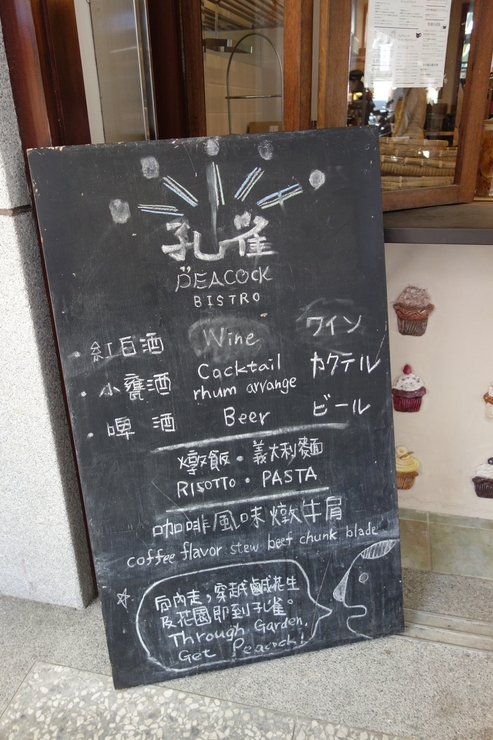 孔雀
PEACOCK
BISTRO
・紅白酒 Wine ワイン
・小甕酒 Cocktail rhum arrange カクテル
・啤酒 Beer ビール
燉飯・義大利麵
RISOTTO・PASTA
咖啡風味燉牛肩
coffee flavor stew beef chunk blade
☆向內走,穿越鹹花生
及花園即到孔雀。
Through Garden,
Get Peacock!